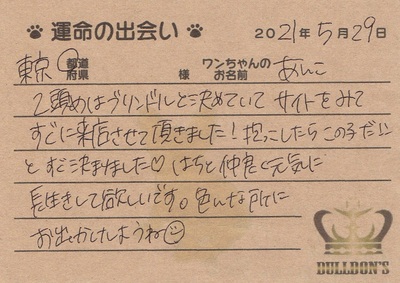 運命の出会い 2021年5月29日
東京 都道府県 様 ワンちゃんのお名前 あんこ
2頭めはブリンドルと決めていて サイトをみて
すぐに来店させて頂きました！抱っこしたらこの子だ!!
と すぐ決まりました♡ はちと仲良く元気に
長生きして欲しいです。色んな所に
お出かけしようね☺
BULLDON'S